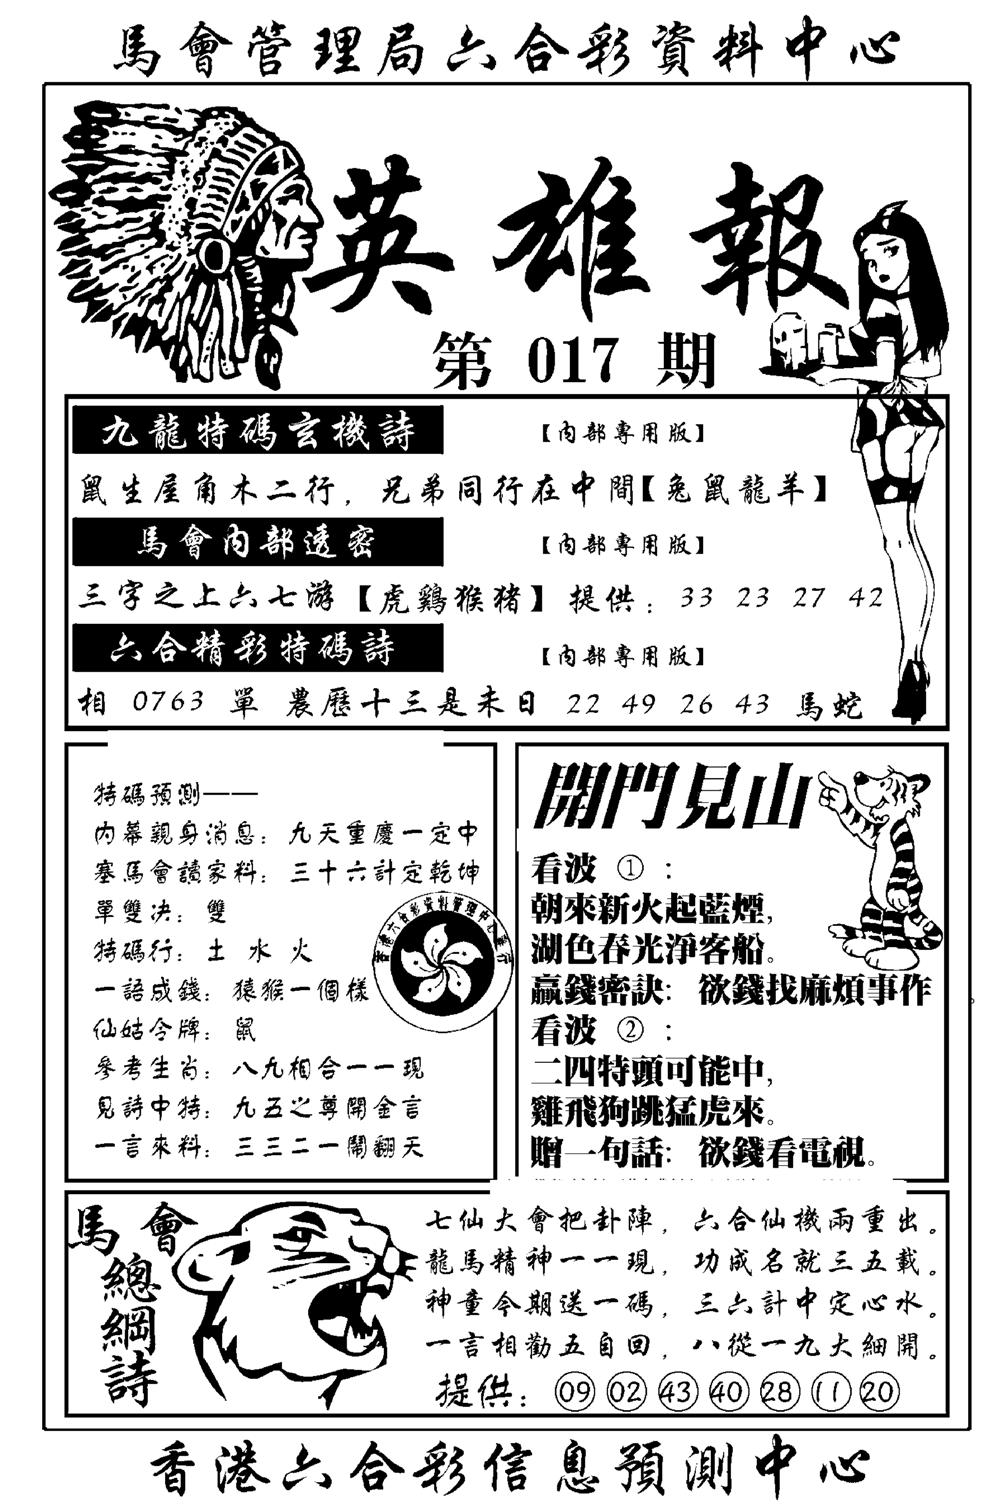 馬會管理局六合彩資料中心
英雄報
第 017 期
九龍特碼玄機詩 【內部專用版】
鼠生屋角木二行，兄弟同行在中間【兔鼠龍羊】
馬會內部透密 【內部專用版】
三字之上六七游【虎鷄猴猪】 提供：33 23 27 42
六合精彩特碼詩 【內部專用版】
相 0763 單 農歷十三是未日 22 49 26 43 馬蛇
特碼預測——
內幕親身消息：九天重慶一定中
塞馬會讀家料：三十六計定乾坤
單雙决：雙
特碼行：土 水 火
一語成錢：猿猴一個樣
仙姑令牌：鼠
參考生肖：八九相合一一現
見詩中特：九五之尊開金言
一言來料：三三二一鬧翻天
開門見山
看波 ①：
朝來新火起藍煙，
湖色春光淨客船。
贏錢密訣：欲錢找麻煩事作。
看波 ②：
二四特頭可能中，
雞飛狗跳猛虎來。
贈一句話：欲錢看電視。
馬會
總綱詩
七仙大會把卦陣，六合仙機兩重出。
龍馬精神一一現，功成名就三五載。
神童今期送一碼，三六計中定心水。
一言相勸五自回，八從一九大細開。
提供：09 02 43 40 28 11 20
香港六合彩信息預測中心